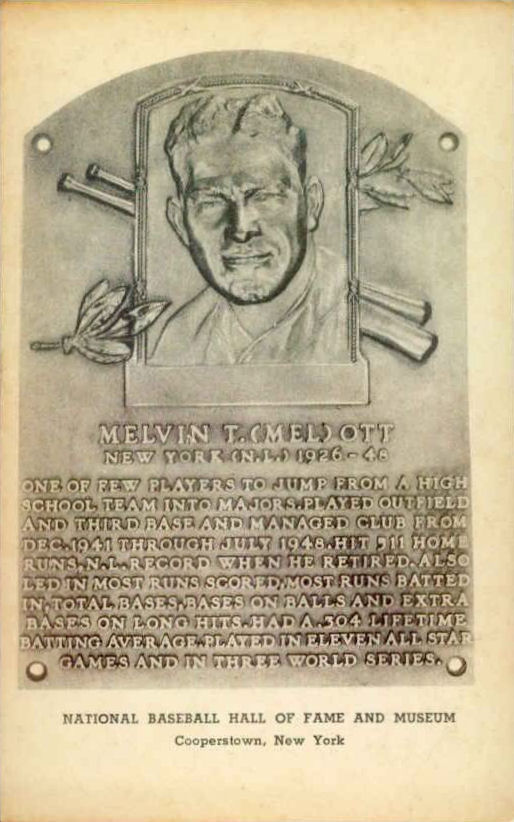 MELVIN T. (MEL) OTT
NEW YORK (N.L.) 1926-48
ONE OF FEW PLAYERS TO JUMP FROM A HIGH
SCHOOL TEAM INTO MAJORS. PLAYED OUTFIELD
AND THIRD BASE AND MANAGED CLUB FROM
DEC. 1941 THROUGH JULY 1948. HIT 511 HOME
RUNS, N.L. RECORD WHEN HE RETIRED. ALSO
LED IN MOST RUNS SCORED, MOST RUNS BATTED
IN, TOTAL BASES, BASES ON BALLS AND EXTRA
BASES ON LONG HITS. HAD A .304 LIFETIME
BATTING AVERAGE. PLAYED IN ELEVEN ALL STAR
GAMES AND IN THREE WORLD SERIES.
NATIONAL BASEBALL HALL OF FAME AND MUSEUM
Cooperstown, New York